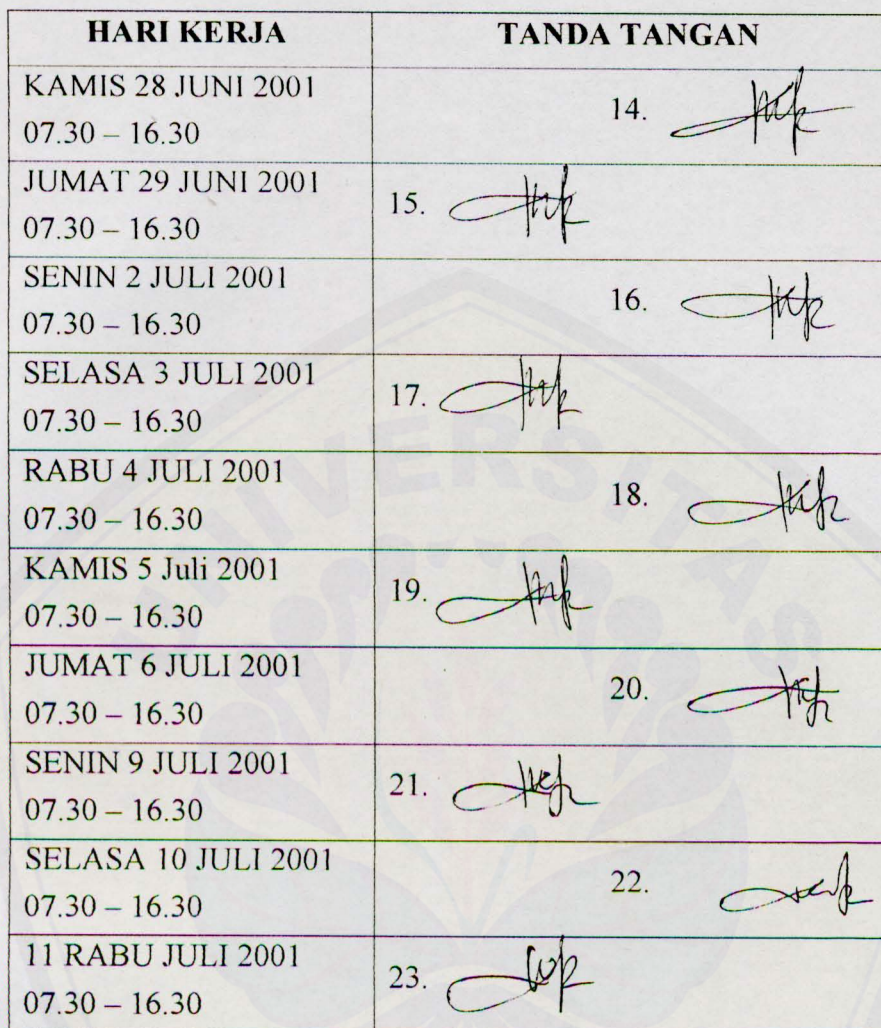 HARI KERJA TANDA TANGAN
KAMIS 28 JUNI 2001
07.30 – 16.30
14.
JUMAT 29 JUNI 2001
07.30 – 16.30
15.
SENIN 2 JULI 2001
07.30 – 16.30
16.
SELASA 3 JULI 2001
07.30 – 16.30
17.
RABU 4 JULI 2001
07.30 – 16.30
18.
KAMIS 5 Juli 2001
07.30 – 16.30
19.
JUMAT 6 JULI 2001
07.30 – 16.30
20.
SENIN 9 JULI 2001
07.30 – 16.30
21.
SELASA 10 JULI 2001
07.30 – 16.30
22.
11 RABU JULI 2001
07.30 – 16.30
23.
UNIVERSITAS